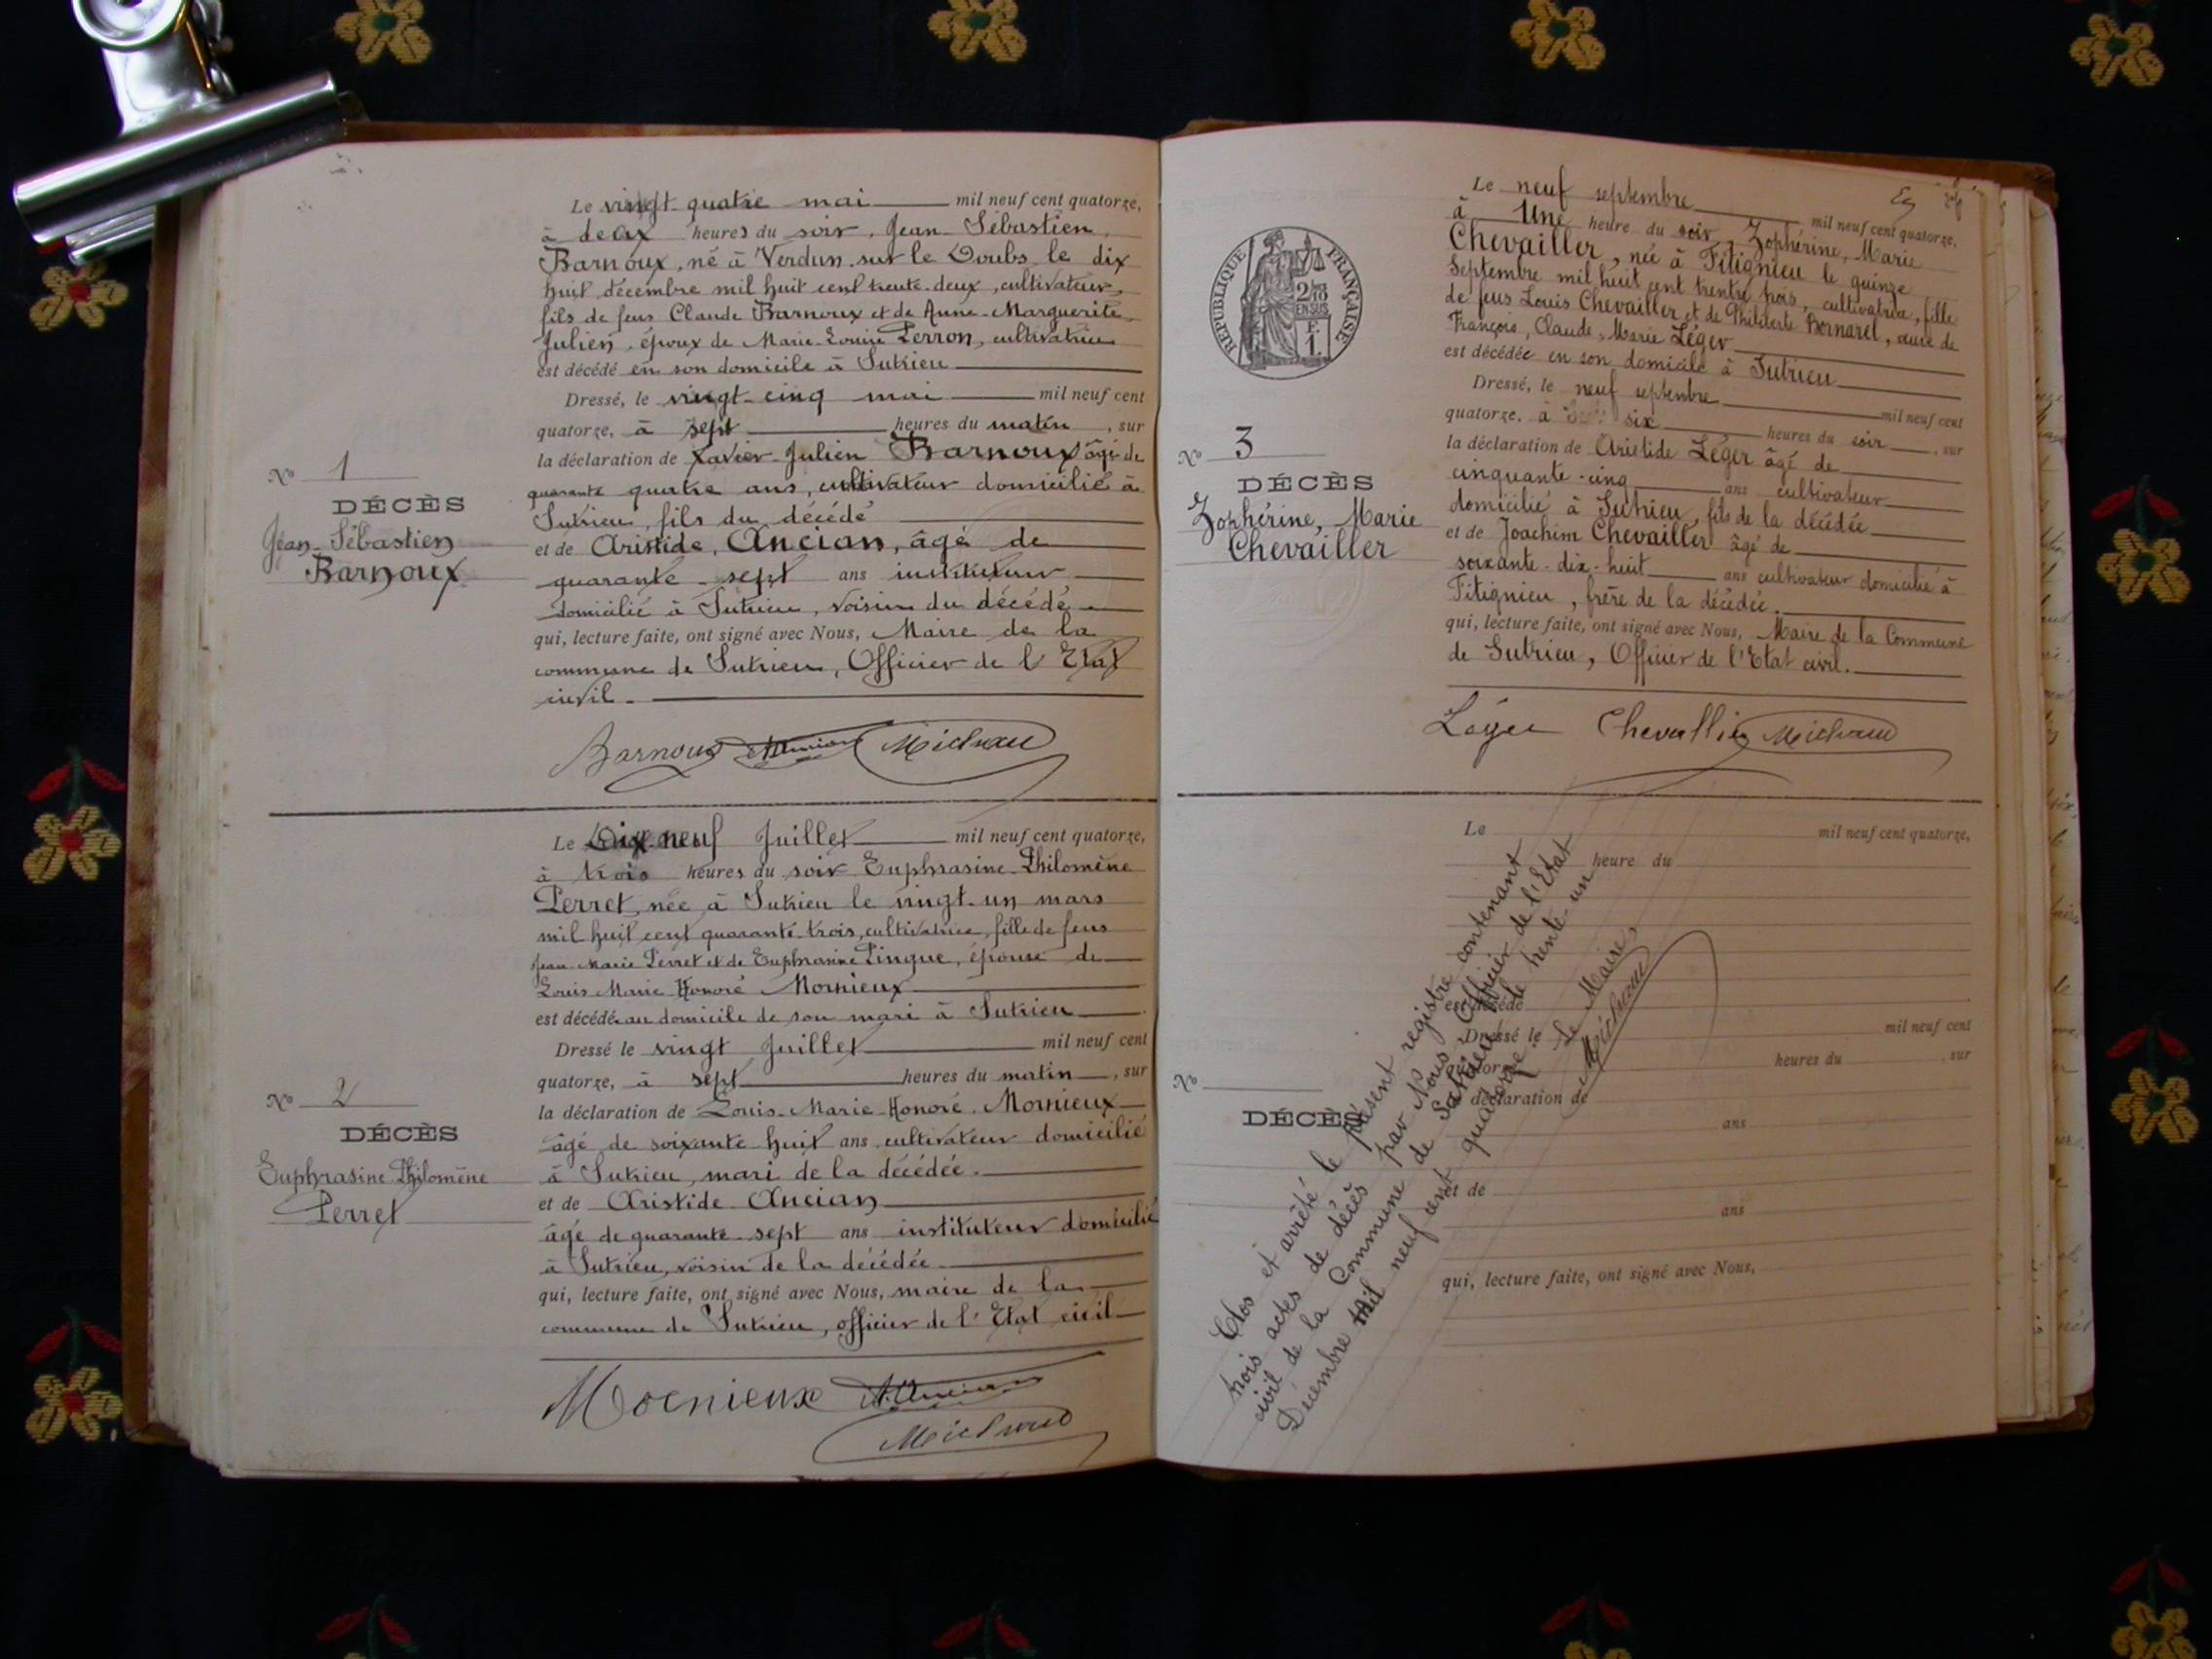 Le vingt quatre mai mil neuf cent quatorze,
à deux heures du soir, Jean-Sébastien
Barnoux, né à Verdun-sur le Doubs le dix
huit décembre mil huit cent trente-deux, cultivateur,
fils de feus Claude Barnoux et de Anne-Marguerite
Julien, époux de Marie-Louise Perron, cultivatrice
est décédé en son domicile à Sutrieu
Dressé, le vingt-cinq mai mil neuf cent
quatorze, à sept heures du matin, sur
la déclaration de Xavier-Julien Barnoux âgé de
quarante quatre ans, cultivateur domicilié à
Sutrieu, fils du décédé
et de Aristide, Ancian, âgé de
quarante-sept ans instituteur
domicilié à Sutrieu, voisin du décédé
qui, lecture faite, ont signé avec Nous, Maire de la
commune de Sutrieu, Officier de l'Etat
civil.
No 1
DÉCÈS
Jean-Sébastien
Barnoux
Barnoux Ancian Michaud
Le Dix neuf Juillet mil neuf cent quatorze,
à trois heures du soir Euphrasine-Philomène
Perret, née à Sutrieu le vingt-un mars
mil huit cent quarante-trois, cultivatrice, fille de feus
Jean-Marie Perret et de Euphrasine Pingue, épouse de
Louis Marie Honoré Mornieux
est décédée au domicile de son mari à Sutrieu
Dressé le vingt Juillet mil neuf cent
quatorze, à sept heures du matin, sur
la déclaration de Louis-Marie-Honoré Mornieux
âgé de soixante huit ans cultivateur domicilié
à Sutrieu, mari de la décédée.
et de Aristide Ancian
âgé de quarante-sept ans instituteur domicilié
à Sutrieu, voisin de la décédée
qui, lecture faite, ont signé avec Nous, maire de la
commune de Sutrieu, officier de l'Etat civil
No 2
DÉCÈS
Euphrasine-Philomène
Perret
Mornieux Ancian
Michaud
RÉPUBLIQUE FRANÇAISE
2/10
EN SUS
F.
1.
Le neuf septembre mil neuf cent quatorze,
à Une heure du soir, Zophérine, Marie
Chevailler, née à Fitignieu le quinze
Septembre mil huit cent trentre trois, cultivatrice, fille
de feus Louis Chevailler et de Philiberte Bornarel, veuve de
François, Claude, Marie Léger
est décédée en son domicile à Sutrieu
Dressé, le neuf septembre mil neuf cent
quatorze, à six heures du soir, sur
la déclaration de Aristide Léger âgé de
cinquante-cinq ans cultivateur
domicilié à Sutrieu, fils de la décédée
et de Joachim Chevailler âgé de
soixante-dix-huit ans cultivateur domicilié à
Fitignieu, frère de la décédée.
qui, lecture faite, ont signé avec Nous, Maire de la Commune
de Sutrieu, Officier de l'Etat civil.
No 3
DÉCÈS
Zophérine, Marie
Chevailler
Léger Chevallier Michaud
Le mil neuf cent quatorze,
heure du
est décédé
Dressé le mil neuf cent
quatorze heures du , sur
déclaration de
ans
et de
ans
qui, lecture faite, ont signé avec Nous,
No
DÉCÈS
Clos et arrêté le présent registre contenant
trois actes de décès par Nous Officier de l'Etat
civil de la Commune de Sutrieu le trente-un
Décembre mil neuf cent quatorze.
Le Maire,
Michaud